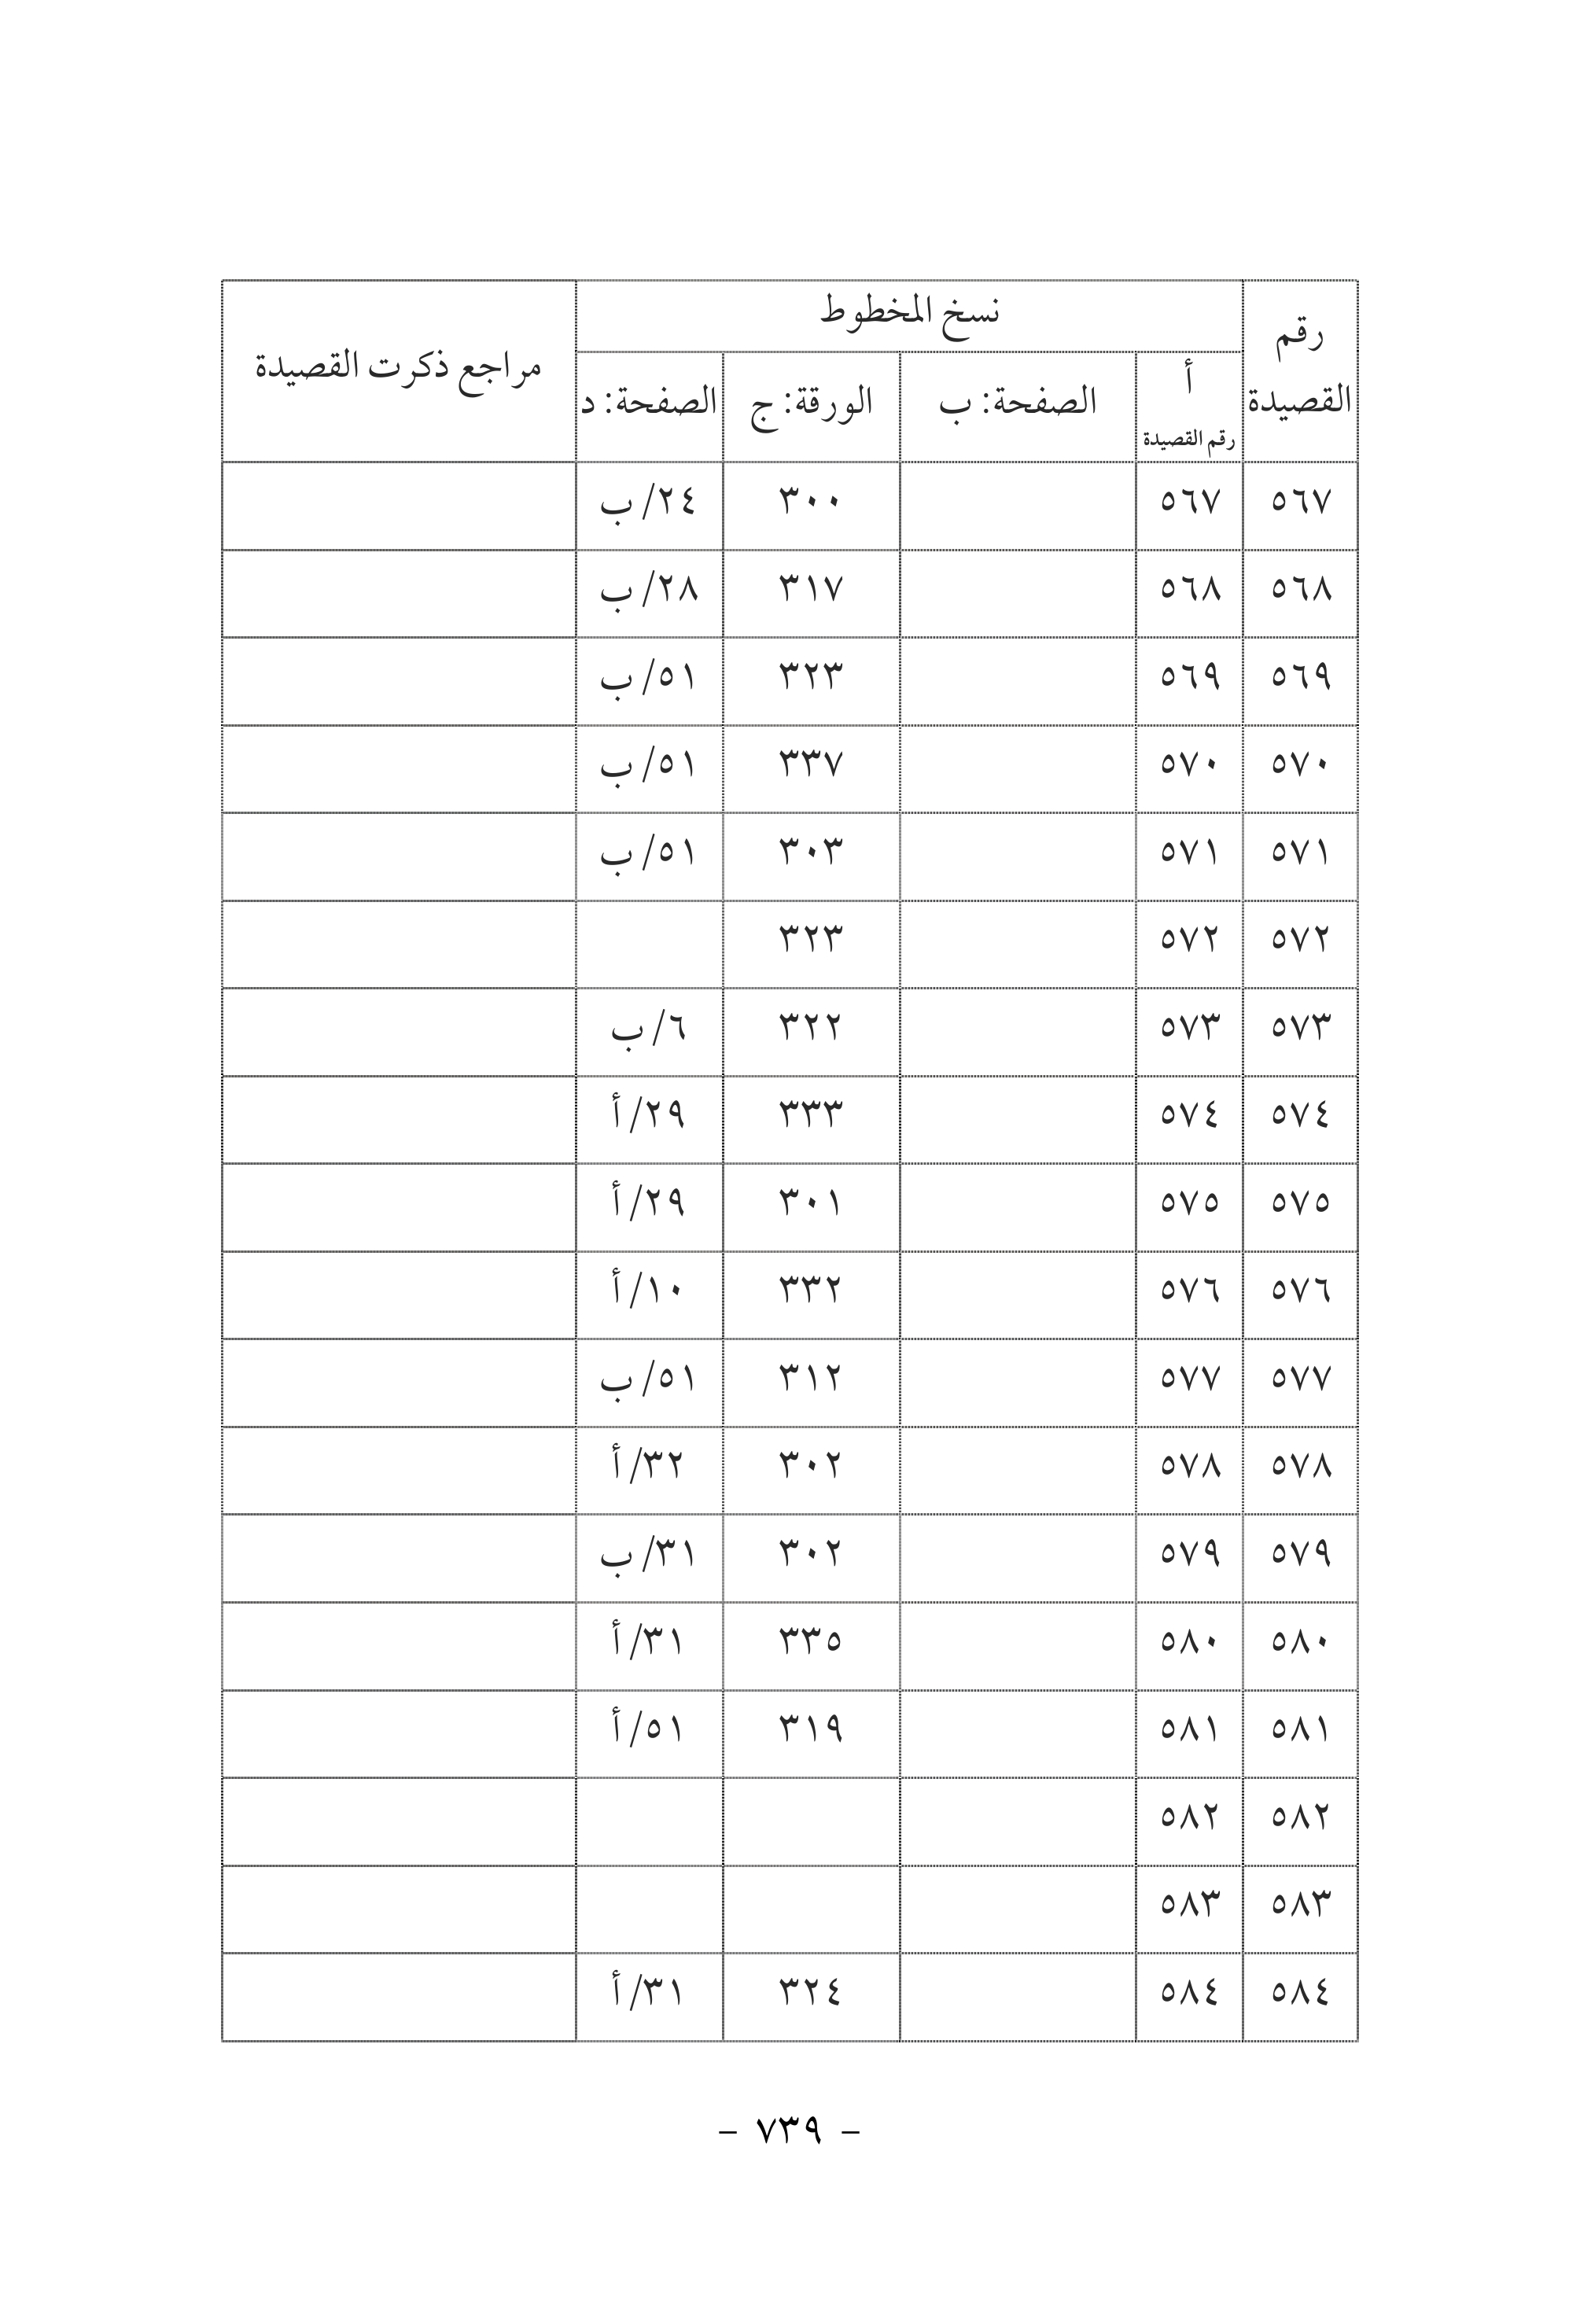 رقم القصيدة نسخ المخطوط مراجع ذكرت القصيدة
أ رقم القصيدة الصفحة: ب الورقة: ج الصفحة: د
٥٦٧ ٥٦٧ ٣٠٠ ٢٤/ب
٥٦٨ ٥٦٨ ٣١٧ ٢٨/ب
٥٦٩ ٥٦٩ ٣٢٣ ٥١/ب
٥٧٠ ٥٧٠ ٣٣٧ ٥١/ب
٥٧١ ٥٧١ ٣٠٣ ٥١/ب
٥٧٢ ٥٧٢ ٣٢٣
٥٧٣ ٥٧٣ ٣٢٢ ٦/ب
٥٧٤ ٥٧٤ ٣٣٣ ٢٩/أ
٥٧٥ ٥٧٥ ٣٠١ ٢٩/أ
٥٧٦ ٥٧٦ ٣٣٢ ١٠/أ
٥٧٧ ٥٧٧ ٣١٢ ٥١/ب
٥٧٨ ٥٧٨ ٣٠٢ ٣٢/أ
٥٧٩ ٥٧٩ ٣٠٢ ٣١/ب
٥٨٠ ٥٨٠ ٣٣٥ ٣١/أ
٥٨١ ٥٨١ ٣١٩ ٥١/أ
٥٨٢ ٥٨٢
٥٨٣ ٥٨٣
٥٨٤ ٥٨٤ ٣٢٤ ٣١/أ
- ٧٣٩ -